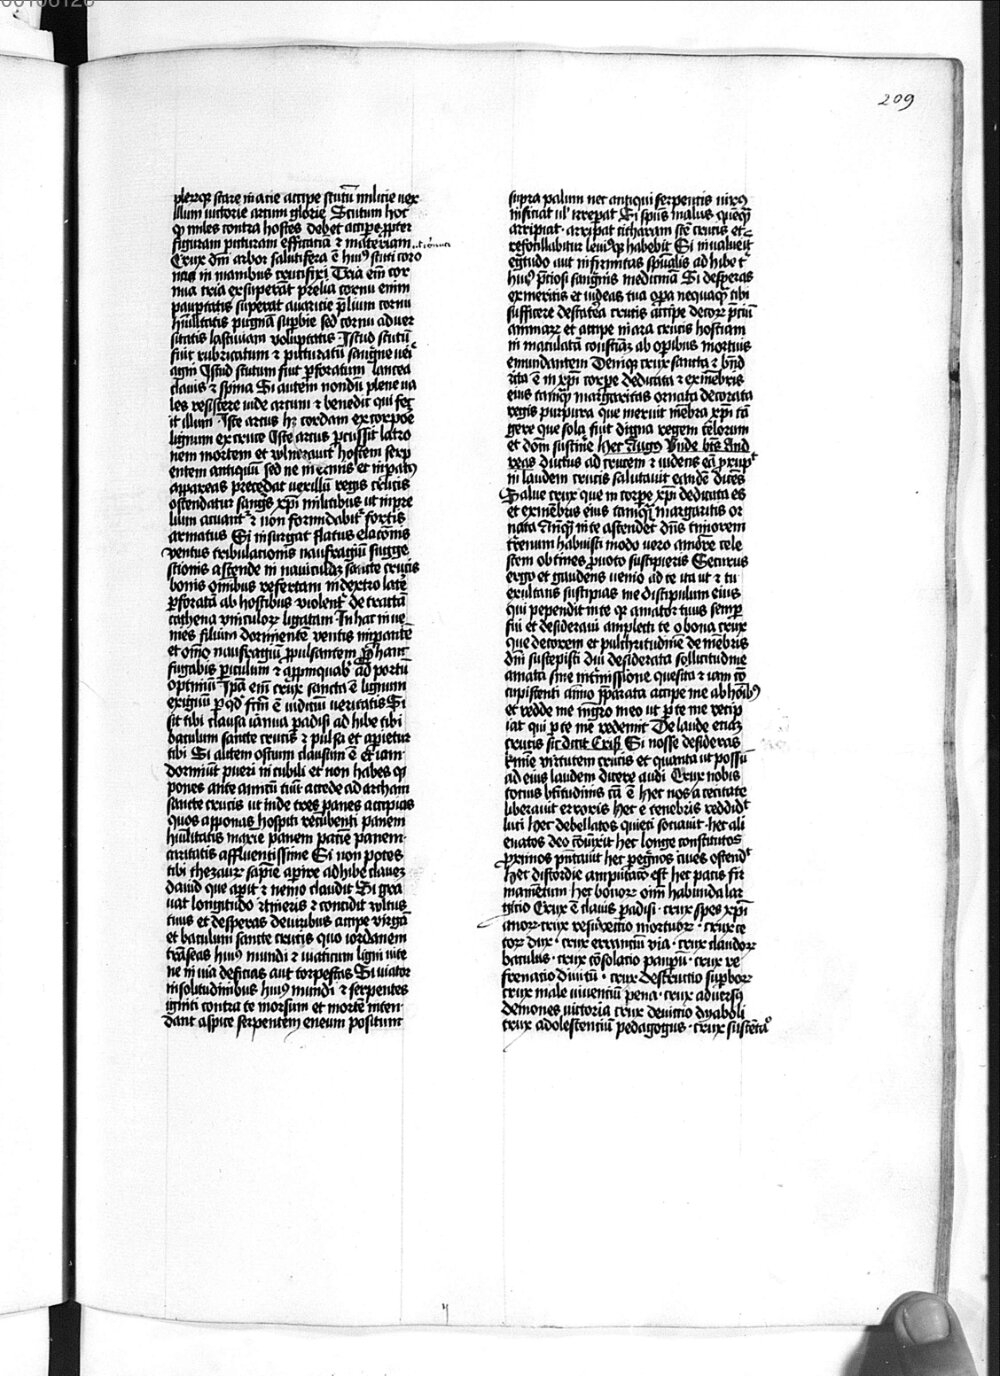 209
plerumque stare in acie accipe scutū milicie vex
illum victorie artum glorie Scutum hoc
ꝙ miles contra hostes debet accipe ꝓpter
figuram picturam efficatiā ⁊ materiam
Crux dn̄i arbor salutifera ē huiꝰ scuti coro
in manibus crucifixi Tria em̄ cor
nua tria exsuperāt prelia cornu enim
paupertatis superat avaricie p̄lium cornu
hūilitatis pugnā supbie sed cornu adver
sitatis lasciviam voluptatis Istud scutū
fuit rubricatum ⁊ picturatū sangīne veri
agni Istud scutum fuit ꝑforatum lancea
clavis ⁊ spina Si autem nondū plene va
les resistere vide arcum ⁊ benedic qui fec
it illum Iste arcus hꝫ cordam ex corpore
lignum ex cruce Iste arcus ꝑcussit latro
nem mortem et vulneravit hostem serp
entem antiquū sed ne inermis et
appareas precedat vexillū regis celestis
ostendatur sangīs xp̄i militibus ut in pre
lium acuant͛ ⁊ non formidabit͛ fortis
armatus Si insurgat flatus elacōnis
ventus tribulacionis naufragiū sugge
stionis ascende in naviculaꝫ sancte crucis
bonis omībus refertam in dextro late͛
ꝑforatā ab hostibus violent͛ detractā
cathena vinculoꝝ ligatam In hac inve
nies filium dormientē ventis imꝑantē
et omē naufragiū ꝓpulsantem ꝑ hanc
fugabis ꝑiculum ⁊ apꝓpinquab͛ ad portū
optimū Ipā em̄ crux sancta ē lignum
exiguū ꝑ qd͛ scm̄ ē iudiciū veritatis Si
sit tibi clausa ianua padisi adhibe tibi
baculum sancte crucis ⁊ pulsa et apietur
tibi Si autem ostium clausum ē et iam
dormiūt pueri in cubili et non habes ꝙ
pones ante amicū tuū accede ad archam
sancte crucis ut inde tres panes accipias
quos apponas hospiti recūbenti panem
hūilitatis marie panem pacīe panem
caritatis affluentissime Si non potes
tibi thezauꝝ sapīe apire adhibe clavez
david que apit ⁊ nemo claudit Si gra
vat longitudo itineris ⁊ concidit vultus
tuus et desperas de viribus accipe virgā
et baculum sancte crucis quo iordanem
trāseas huiꝰ mundi ⁊ viaticum ligni vite
ne in via deficias aut torpescas Si viator
in solitudinibus huiꝰ mundi ⁊ serpentes
igniti contra te morsum et mortē inten
dant aspice serpentem eneum positum
supra palum nec antiqui serpentis virꝰ
inficiat vl͛ irrepat Si spūs malus quēqꝫ
arripiat arripiat citharam scē crucis et
refocillabitur leviusqꝫ habebit Si invalueit
egtudo aut infirmitas spūalis adhibe t͛
huiꝰ p̄ciosi sangīnis medicinā Si desperas
ex meritis et videas tua oꝑa nequaqꝫ tibi
sufficere de statera crucis accipe decorꝫ p̄ciū
animare et accipe in ara crucis hostiam
inmaculatā consciaꝫ ab oꝑibus mortuis
emundantem Deniqꝫ crux sancta ⁊ bn̄d
icta ē in xp̄i corpe dedicata ⁊ ex mēbris
eius tamqꝫ margaritas ornata decorata
regis purpura que meruit mēbra xp̄i tā
gere que sola fuit digna regem celorum
et dn̄m sustinē hec Augꝰ Unde bt̄s And
reas ductus ad crucem ⁊ videns eā ꝓrupit
in laudem crucis salutavit eandē dicēs
Salve crux que in corpe xp̄i dedicata es
et ex mēbris eius tamqꝫ margaritis or
nata Anteqꝫ in te ascendet dn̄s timorem
trenum habuisti modo vero amorē cele
stem obtines ꝓ voto susciperis Securus
ergo et gaudens venio ad te ita ut ⁊ tu
exultans suscipias me discipulum eius
qui pependit in te qꝛ amator tuus semꝑ
fui et desideravi amplecti te o bona crux
que decorem et pulchritudinē de mēbris
dn̄i suscepisti diu desiderata sollicitudine
amata sine intīmissione quesita ⁊ iam cō
cupiscenti aīmo ꝑparata accipe me ab hoībꝰ
et redde me mgr̄o meo ut ꝑ te me recip
iat qui ꝑ te me redemit De laude etiaꝫ
crucis sic dicit Cris͛ Si nosse desideras
kr̄me virtutem crucis et quanta ut possū
ad eius laudem dicere audi Crux nobis
tocius btītudinis cā ē Hec nos a cecitate
liberavit erroris hec e tenebris reddidit
luci hec debellatos quieti sociavit hec ali
enatos deo cōiūxit hec longe constitutos
proximos pn̄tavit hec peg̀nos cives ostend͛
Hec discordie amputatō est hec pacis fir
mamētum hec bonoꝝ om̄ habunda lar
gitio Crux ē clavis padisi crux spes xp̄i
anoꝝ crux resurrectio mortuoꝝ crux ce
coꝝ dux crux errantiū via crux claudoꝝ
baculus crux cōsolatio paupū crux re
frenatio divitū crux destructio suꝑboꝝ
crux male viventiū pena crux adversꝰ
demones victoria crux devictio dyaboli
crux adolescentiū pedagogus crux sustēta